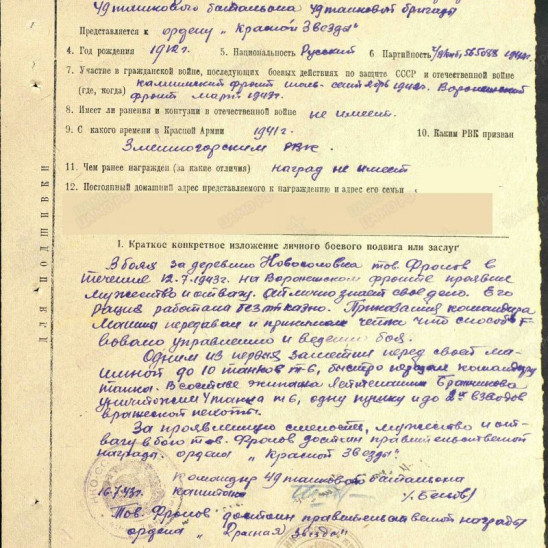 танкового батальона танковой бригады
Представляется к ордену „Красной Звезды"
4. Год рождения 1912г. 5. Национальность Русский 6 Партийность
7. Участие в гражданской войне, последующих боевых действиях по защите СССР и отечественной войне
(где, когда) Калининский фронт июль-сентябрь 1942г. Воронежский
фронт март 1943г.
8. Имеет ли ранения и контузии в отечественной войне не имеет.
9. С какого времени в Красной Армии 1941г. 10. Каким РВК призван
Змеиногорским РВК.
11. Чем ранее награжден (за какие отличия) наград не имеет
12. Постоянный домашний адрес представляемого к награждению и адрес его семьи
ДЛЯ ПОДШИВКИ
I. Краткое конкретное изложение личного боевого подвига или заслуг
В боях за деревню Новоселовка тов. Фролов в
течение 12.7.1943г. на Воронежском фронте проявил
мужество и отвагу. Отлично знает свое дело. Его
рация работала безотказно. Приказания командира
машины передавал и принимал четко что способст
вовало управлению и ведению боя.
Одним из первых заметил перед своей ма-
шиной до 10 танков т-6, быстро передал командиру
танка. В составе экипажа лейтенанта Бражникова
уничтожил 4 танка т6, одну пушку и до 2х взводов
вражеской пехоты.
За проявленную смелость, мужество и от-
вагу в бою тов. Фролов достоин правительственной
награды ордена „Красной Звезды".
Командир танкового батальона
16.7.43г. капитан
Тов. Фролов достоин правительственной награды
ордена „Красная Звезда"